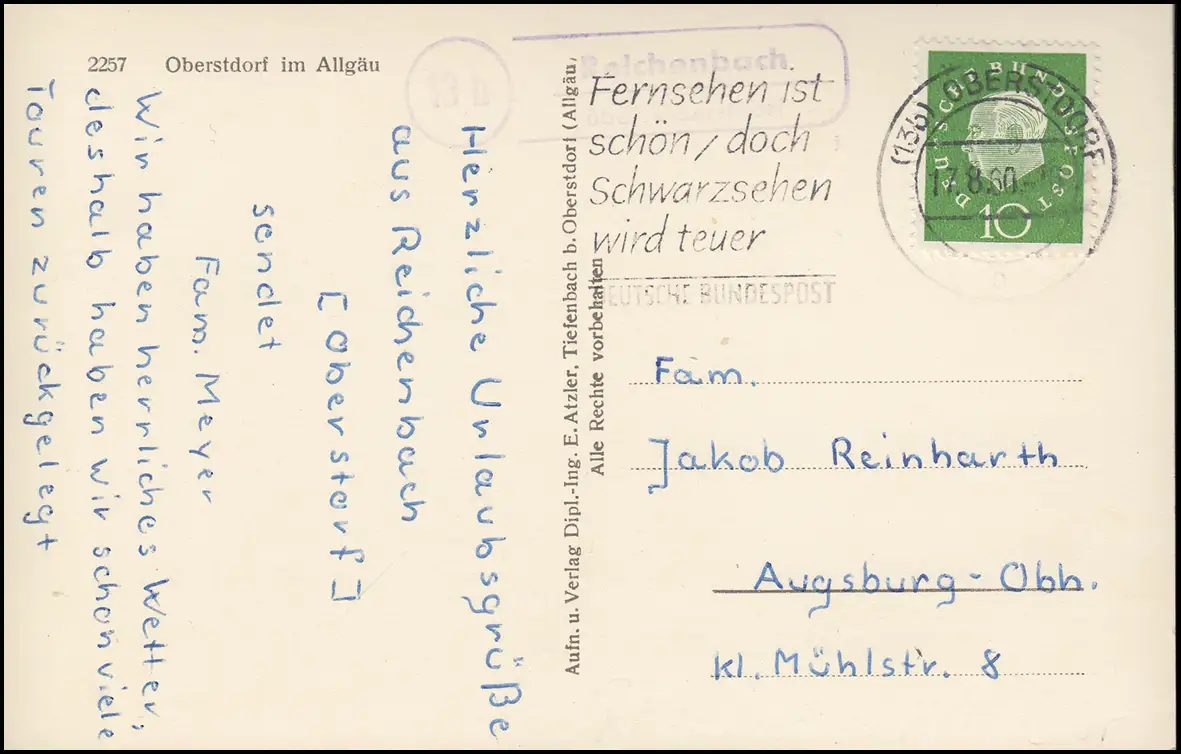 2257 Oberstdorf im Allgäu
Herzliche Urlaubsgrüße
aus Reichenbach
[Oberstorf]
sendet
Fam. Meyer
Wir haben herrliches Wetter,
deshalb haben wir schon viele
Touren zurückgelegt
Aufn. u. Verlag Dipl.-Ing. E. Atzler, Tiefenbach b. Oberstdorf (Allgäu)
Alle Rechte vorbehalten
Reichenbach
Fernsehen ist
schön / doch
Schwarzsehen
wird teuer
DEUTSCHE BUNDESPOST
(13b) OBERSTDORF
17.8.60.
DEUTSCHE BUNDESPOST
10
Fam.
Jakob Reinharth
Augsburg-Obh.
kl. Mühlstr. 8